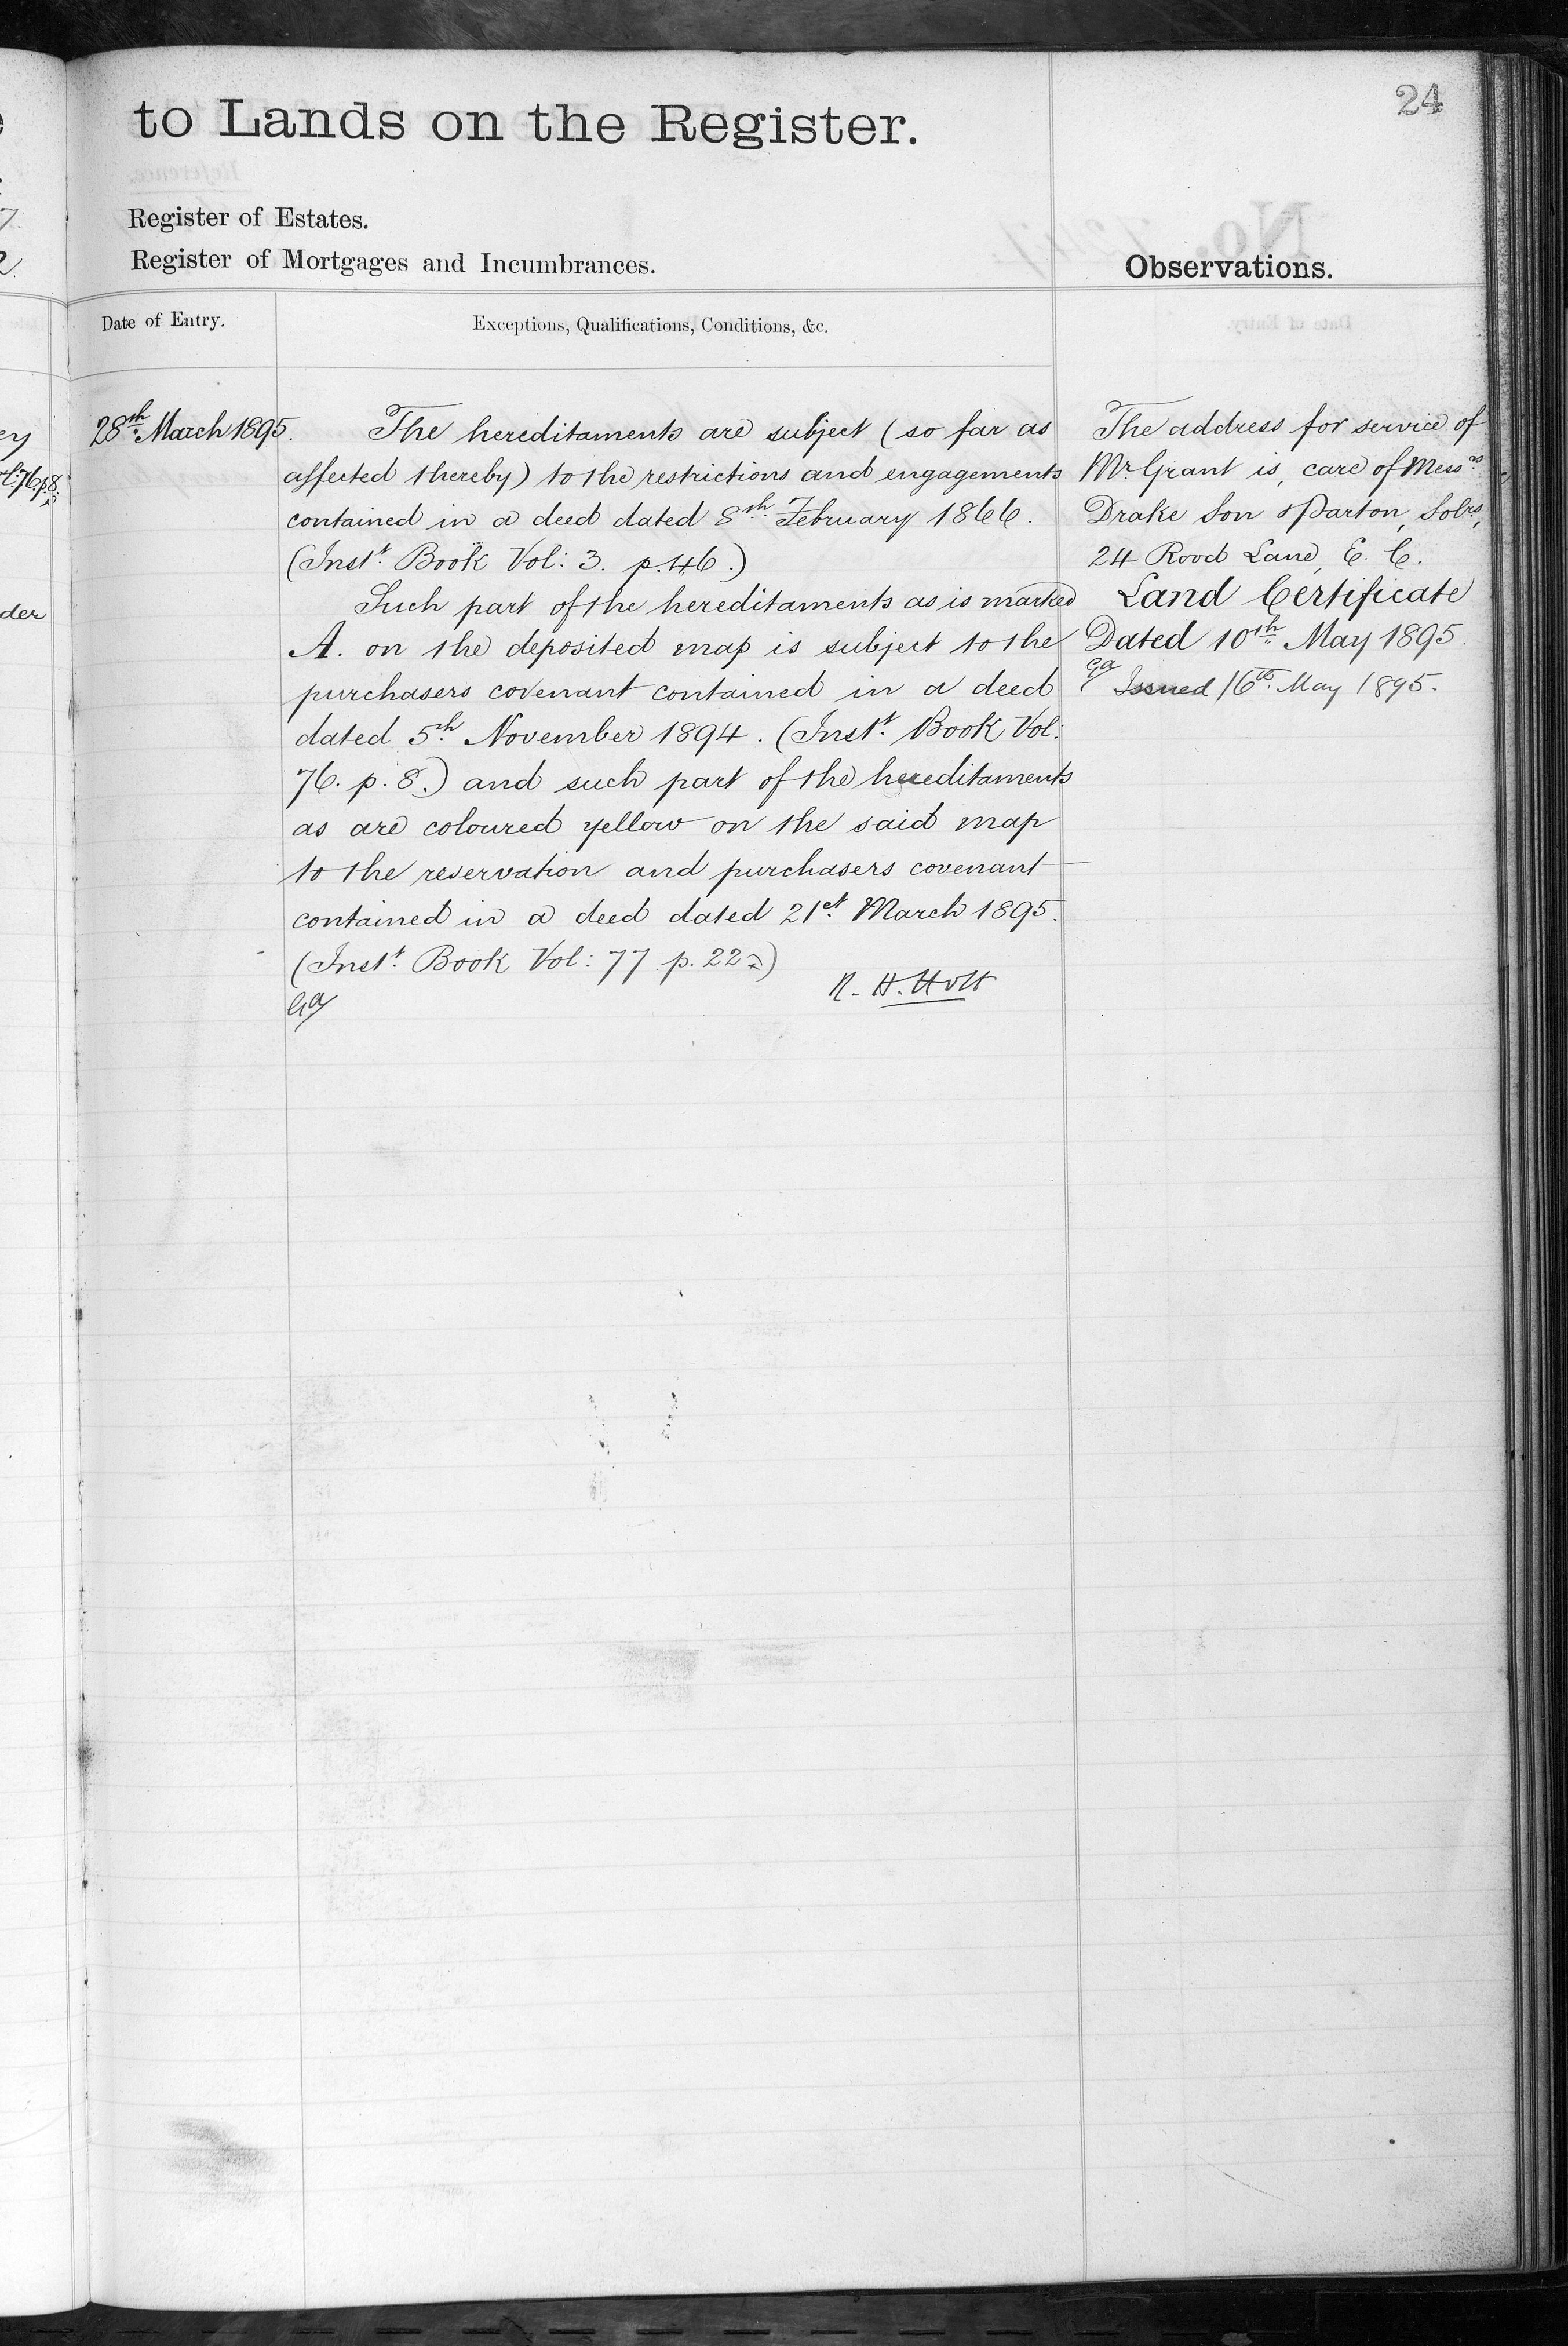 24
to Lands on the Register.
Register of Estates.
Register of Mortgages and Incumbrances.
Observations.
Date of Entry.
Exceptions, Qualifications, Conditions, &c.
28th March 1895.
The hereditaments are subject (so far as
affected thereby) to the restrictions and engagements
contained in a deed dated 8th February 1866.
(Inst. Book Vol: 3. p. 46.)
Such part of the hereditaments as is marked
A. on the deposited map is subject to the
purchasers covenant contained in a deed
dated 5th November 1894. (Inst. Book Vol:
76. p. 8.) and such part of the hereditaments
as are coloured yellow on the said map
to the reservation and purchasers covenant
contained in a deed dated 21st March 1895.
(Inst. Book Vol: 77 p. 22)
Ga
R. H. Holt
The address for service of
Mr. Grant is, care of Messrs
Drake Son & Parton, Solrs,
24 Rood Lane, E. C.
Land Certificate
Dated 10th May 1895.
Ga
Issued 16th May 1895.
ey
l: 76 p 8
der